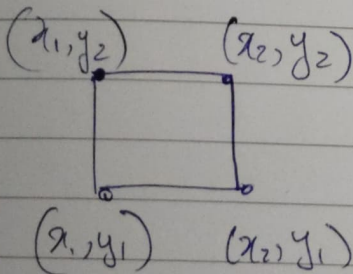 (x₁, y₂) (x₂, y₂)
(x₁, y₁) (x₂, y₁)